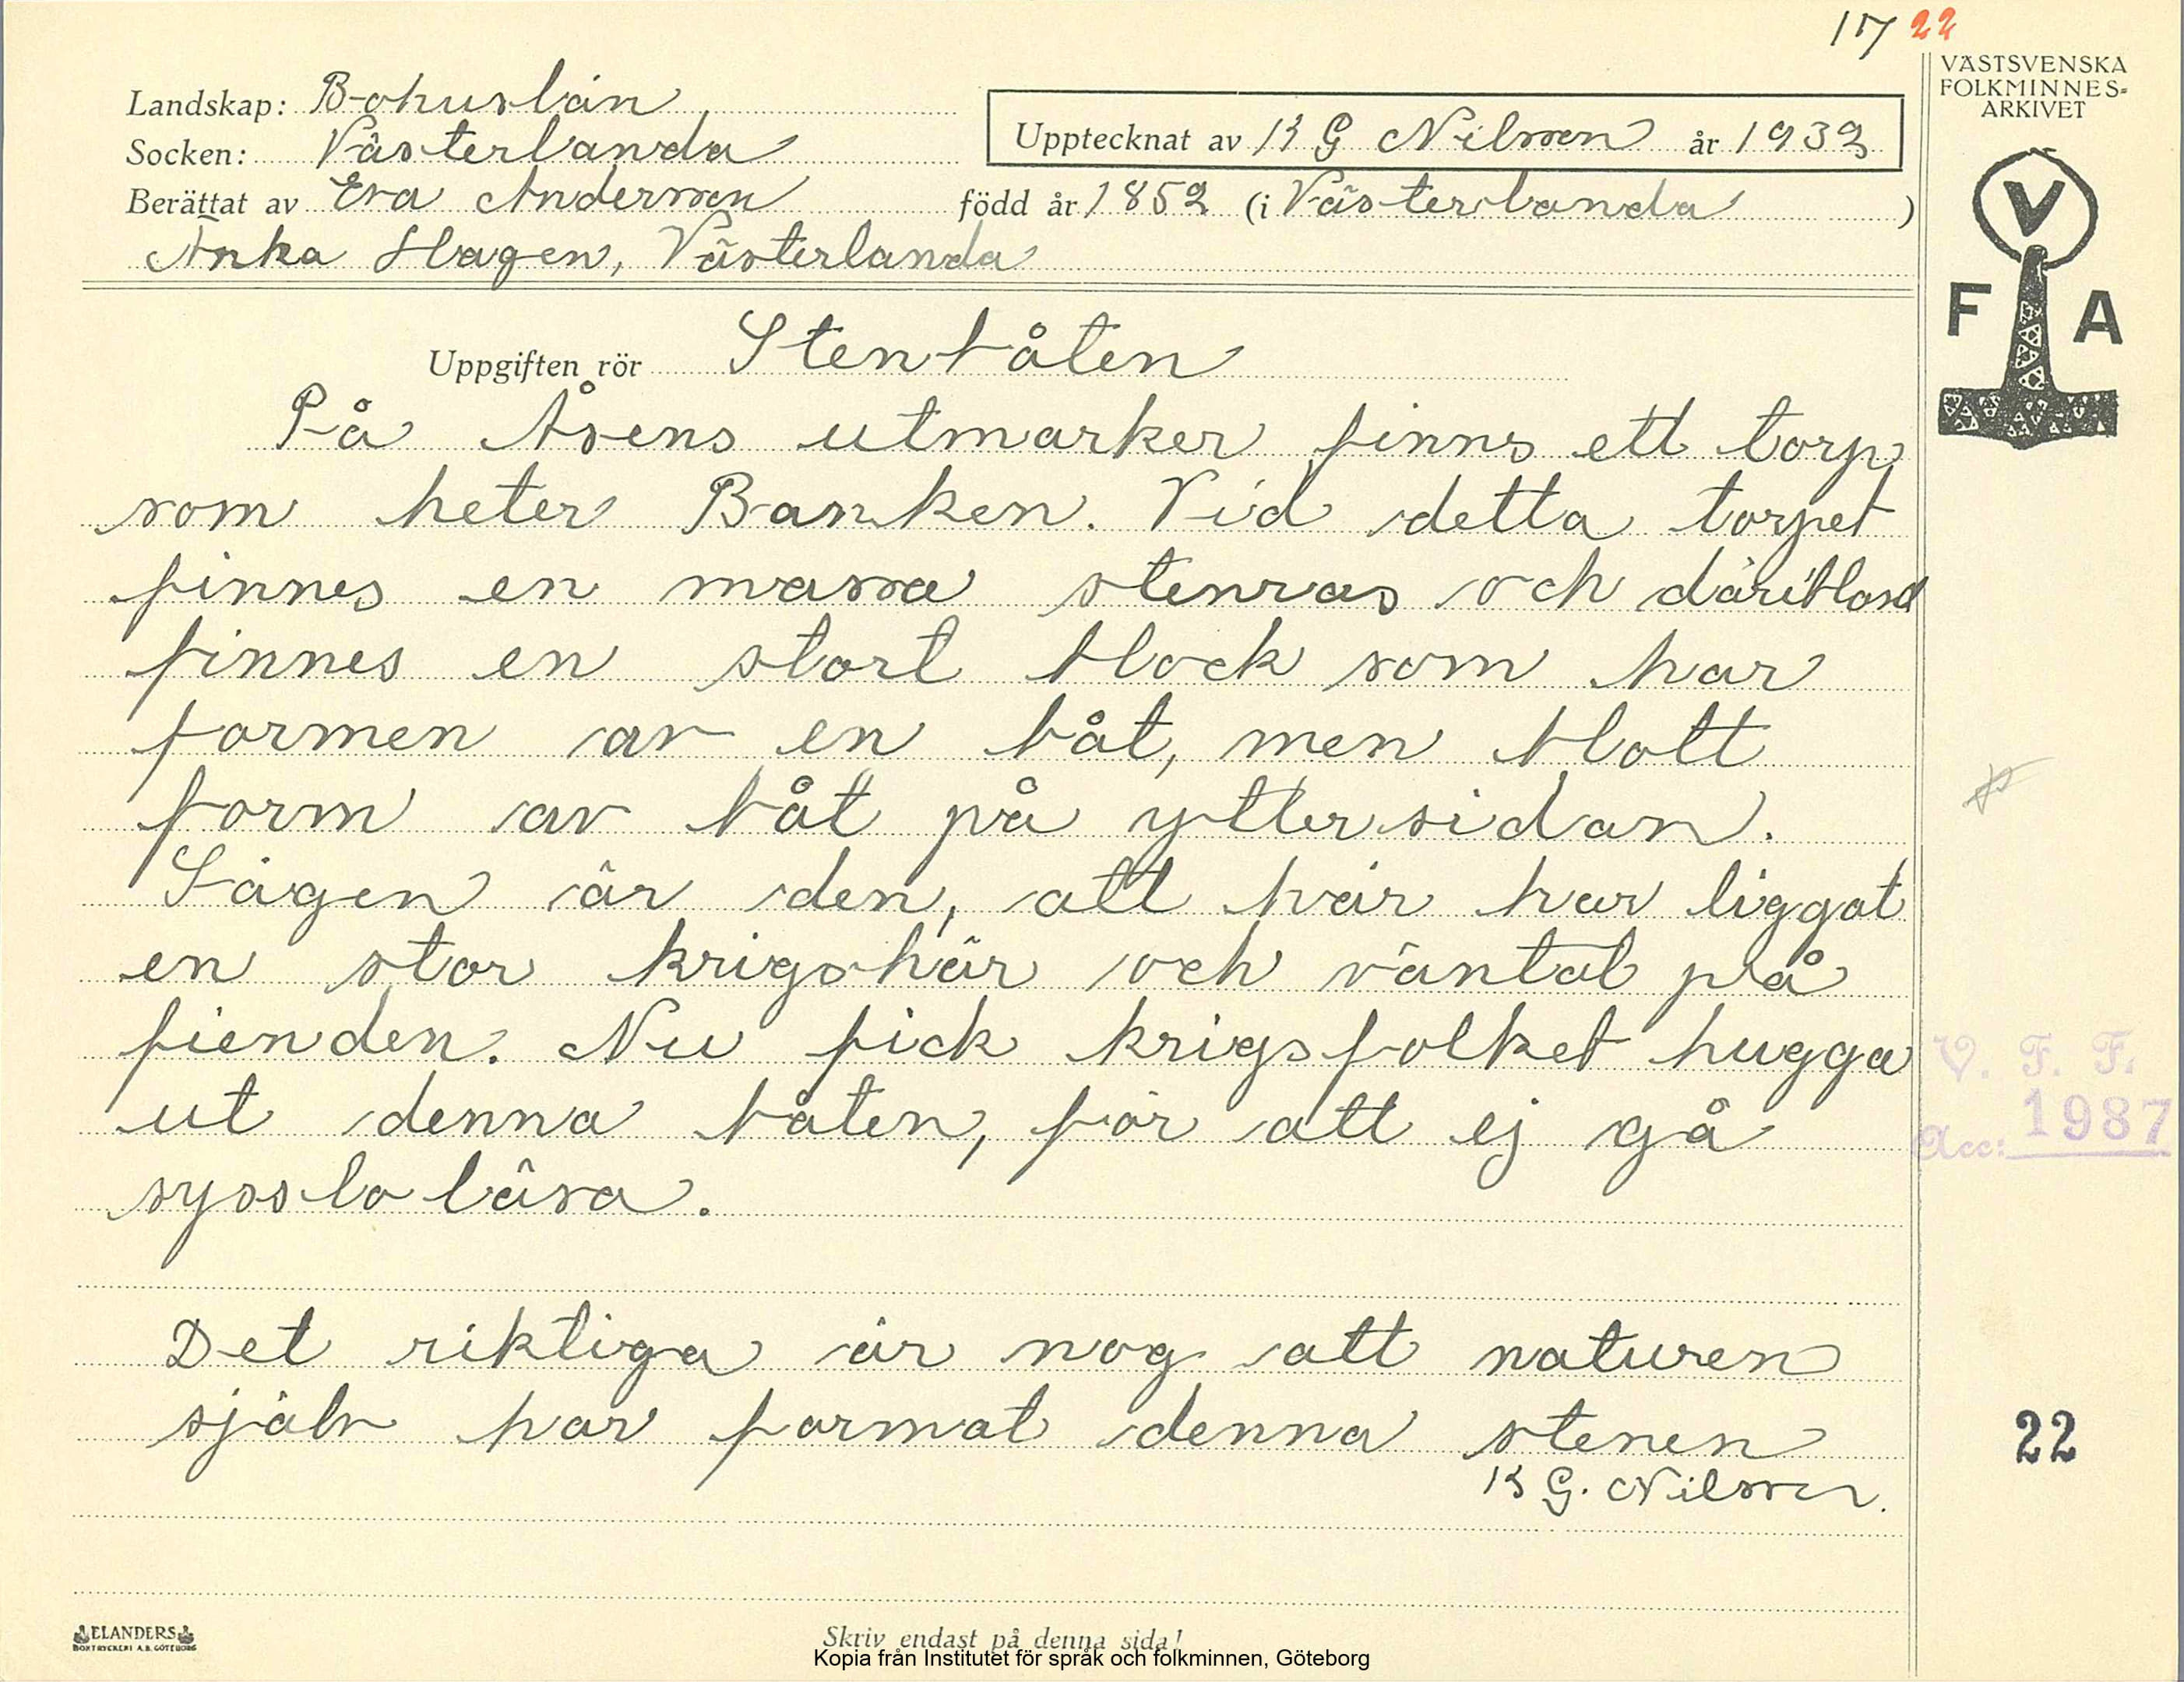 17 22
VÄSTSVENSKA
FOLKMINNES-
ARKIVET
Landskap: Bohuslän
Socken: Västerlanda
Upptecknat av K G Nilsson år 1932
Berättat av Eva Andersson född år 1852 (i Västerlanda )
Anka Hagen, Västerlanda
V
F A
Uppgiften rör Stenbåten
På Åsens utmarker finns ett torp
som heter Banken. Vid detta torpet
finnes en massa stenras och däribland
finnes en stort block som har
formen av en båt, men blott
form av båt på yttersidan.
Sägen är den, att här har liggat
en stor krigshär och väntat på
fienden. Nu fick krigsfolket hugga
ut denna båten, för att ej gå
sysslolösa.
V. F. F.
Acc: 1987
Det riktiga är nog att naturen
själv har format denna stenen
22
K G. Nilsson.
ELANDERS
BOKTRYCKERI A.B. GÖTEBORG
Skriv endast på denna sida!
Kopia från Institutet för språk och folkminnen, Göteborg